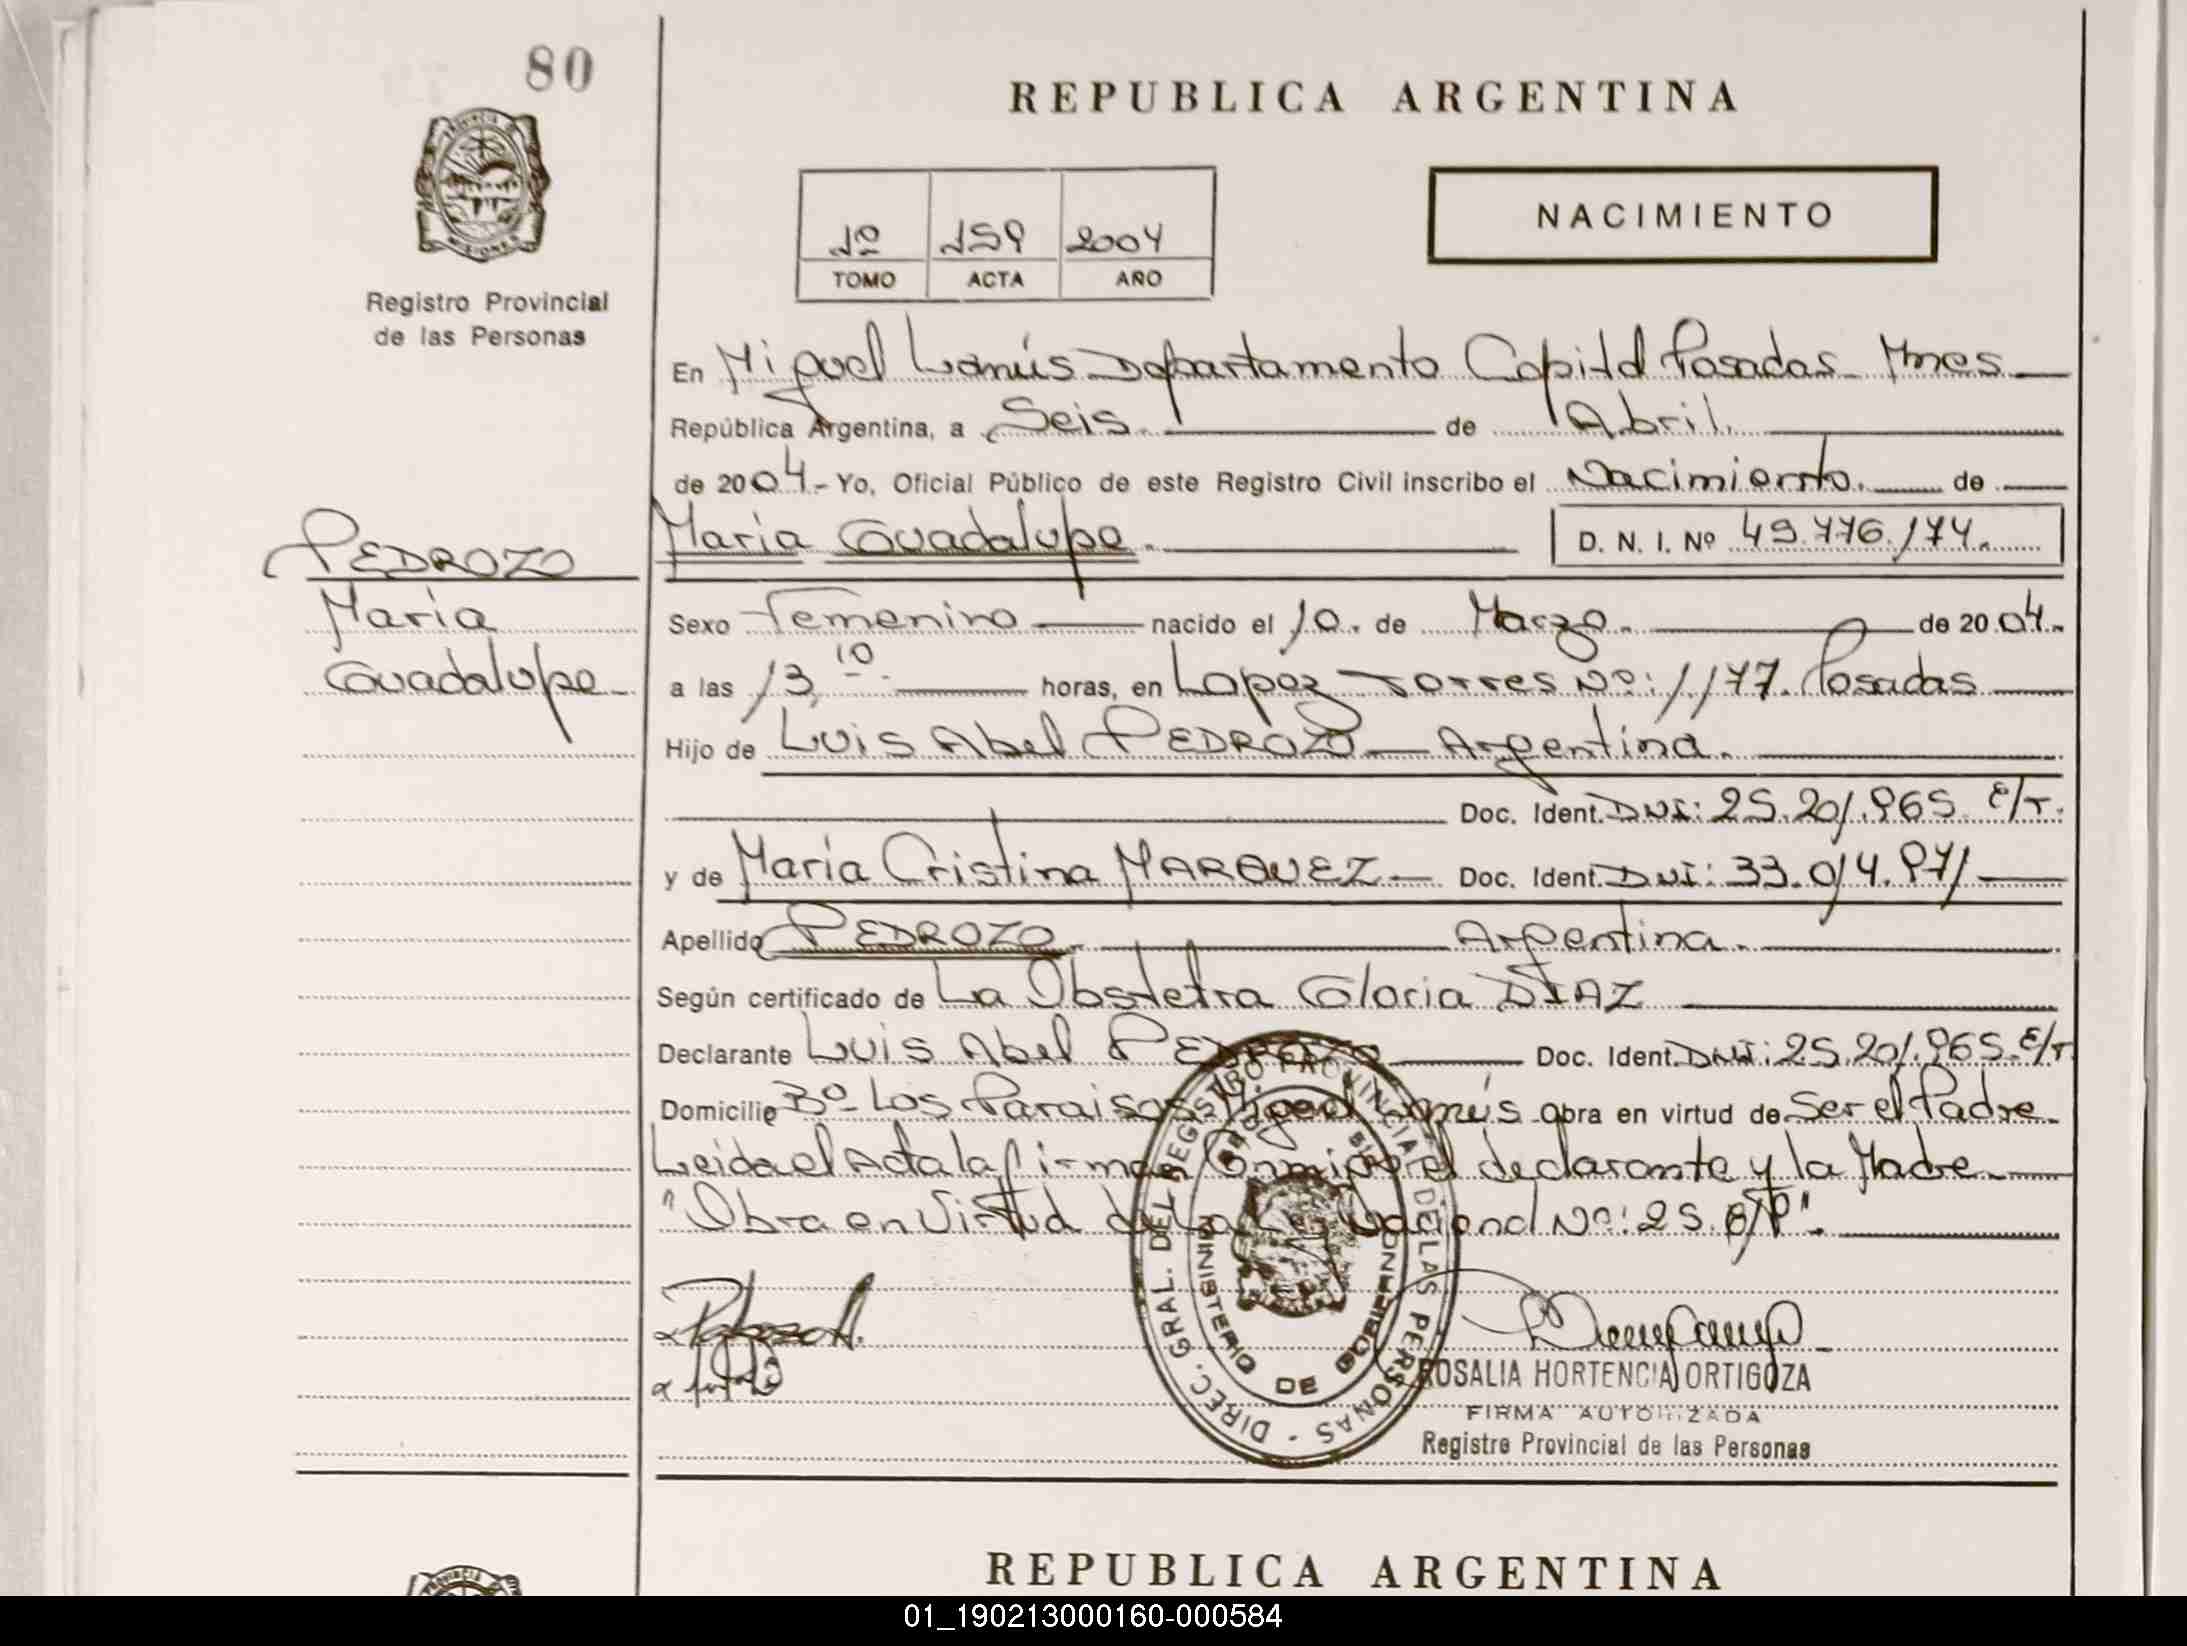 80
REPUBLICA ARGENTINA
PROVINCIA DE
MISIONES
Registro Provincial
de las Personas
1º 159 2004
TOMO ACTA AÑO
NACIMIENTO
En Miguel Lanús Departamento Capital Posadas Mnes
República Argentina, a Seis de Abril
de 2004.- Yo, Oficial Público de este Registro Civil inscribo el Nacimiento. de
María Guadalupe. D. N. I. Nº 49.776.174.
PEDROZO
María
Guadalupe
Sexo Femenino nacido el 10. de Marzo. de 2004.
a las 13,10 horas, en Lopez Torres Nº: 1.177. Posadas
Hijo de Luis Abel PEDROZO Argentina.
Doc. Ident. DNI: 25.201.965. E/T.
y de María Cristina MARQUEZ Doc. Ident. DNI: 33.014.971
Apellido PEDROZO. Argentina.
Según certificado de La Obstetra Gloria DIAZ
Declarante Luis Abel PEDROZO Doc. Ident. DNI: 25.201.965. E/T
Domicilio Bº Los Paraisos Miguel Lanús obra en virtud de Ser el Padre
Leida el Acta la firman Conmigo el declarante y la Madre
"Obra en Virtud de La Ley Nacional Nº: 25.819".
DIREC. GRAL. DEL REGISTRO PROVINCIAL DE LAS PERSONAS
MINISTERIO DE GOBIERNO
ROSALIA HORTENCIA ORTIGOZA
FIRMA AUTORIZADA
Registro Provincial de las Personas
REPUBLICA ARGENTINA
PROVINCIA DE
01_190213000160-000584